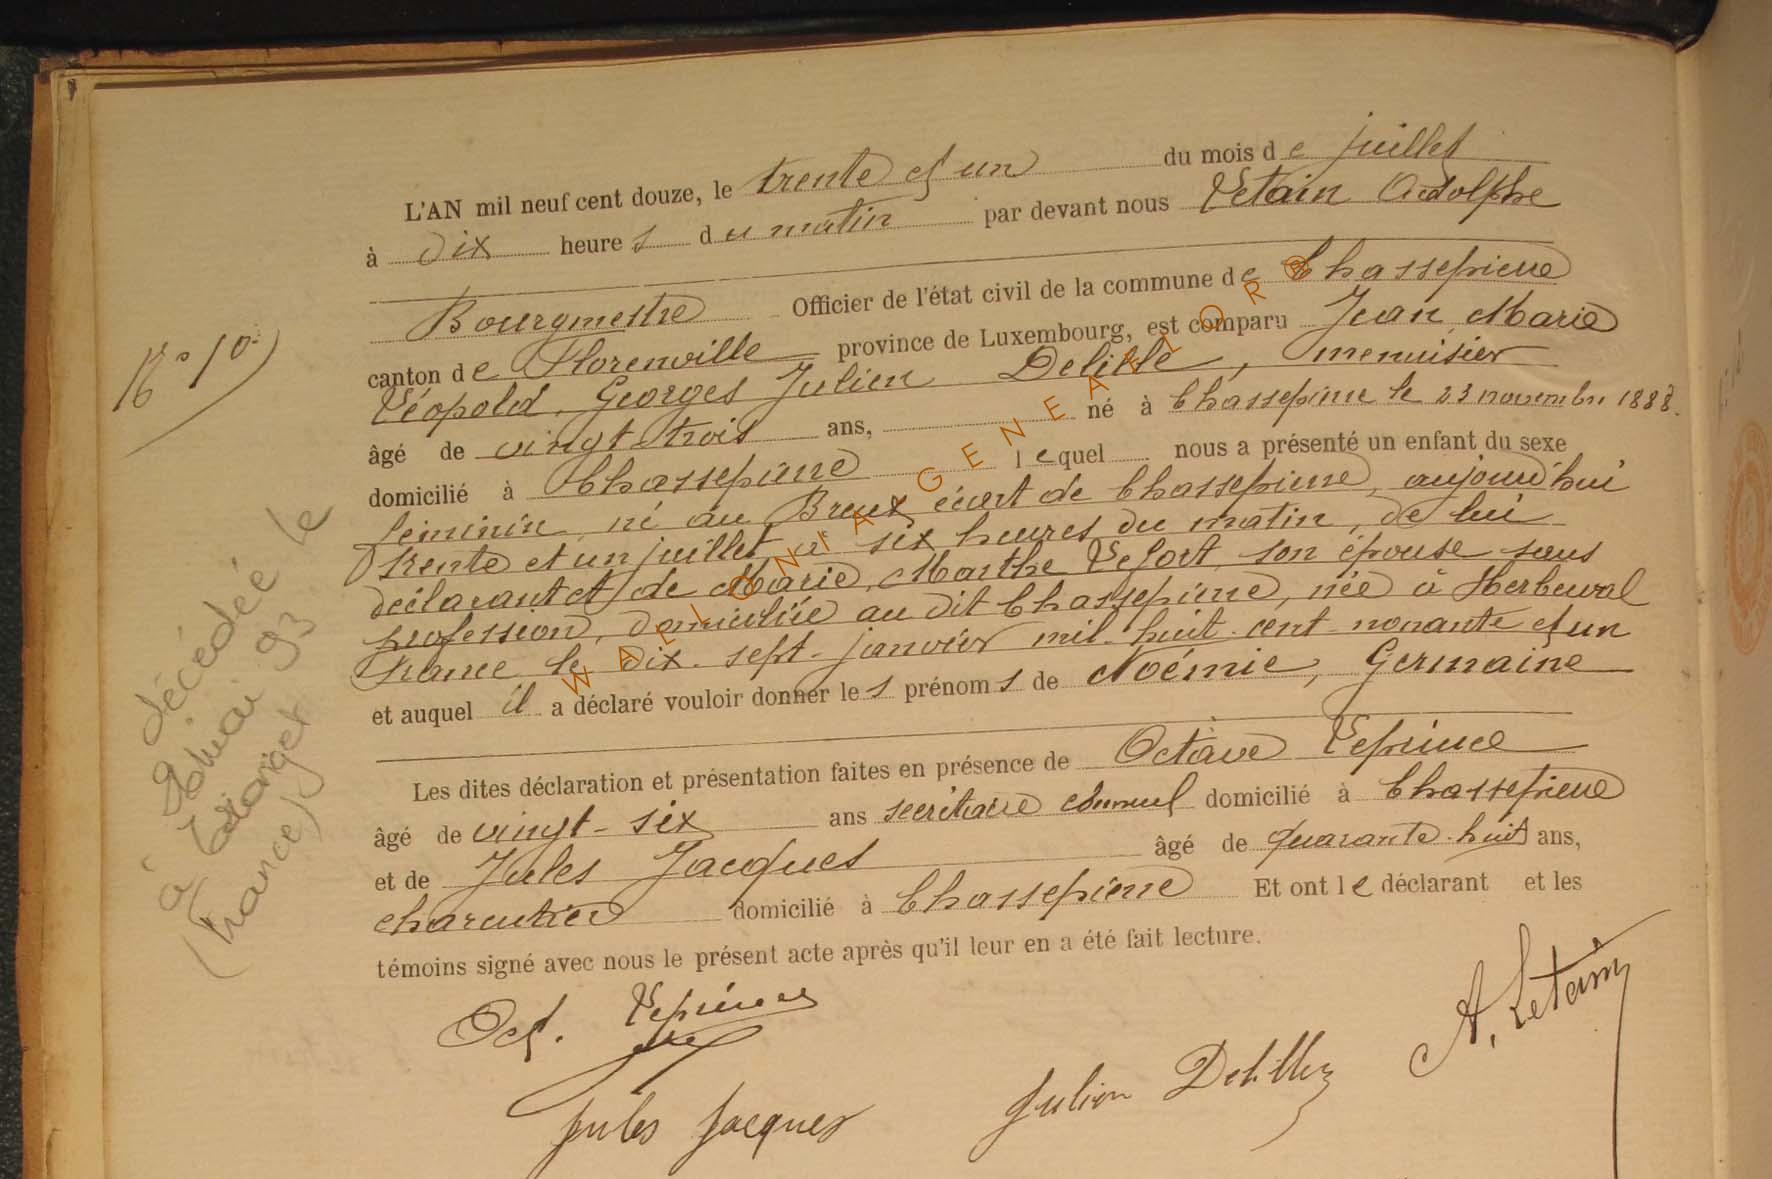 L'AN mil neuf cent douze, le trente et un du mois de juillet
à dix heures du matin par devant nous Letain Adolphe
Bourgmestre Officier de l'état civil de la commune de Chassepierre
N° 10
canton de Florenville province de Luxembourg, est comparu Jean, Marie
Léopold, Georges Julien Delille, menuisier
âgé de vingt-trois ans, né à Chassepierre le 23 novembre 1888.
domicilié à Chassepierre lequel nous a présenté un enfant du sexe
féminin né au Breux écart de Chassepierre, aujourd'hui
trente et un juillet à six heures du matin, de lui
déclarant et de Marie, Marthe Lefort, son épouse sans
profession, domiciliée au dit Chassepierre, née à Herbeuval
France le dix-sept janvier mil-huit-cent-nonante et un
et auquel il a déclaré vouloir donner les prénoms de Noémie, Germaine
Les dites déclaration et présentation faites en présence de Octave Leprince
âgé de vingt-six ans secrétaire domicilié à Chassepierre
et de Jules Jacques âgé de quarante-huit ans,
domicilié à Chassepierre Et ont le déclarant et les
témoins signé avec nous le présent acte après qu'il leur en a été fait lecture.
Oct. Leprince
A. Letain
Jules Jacques
Julien Delille
décédée le
2 mai 93
à
(France)
WALLONIA GENEALOR